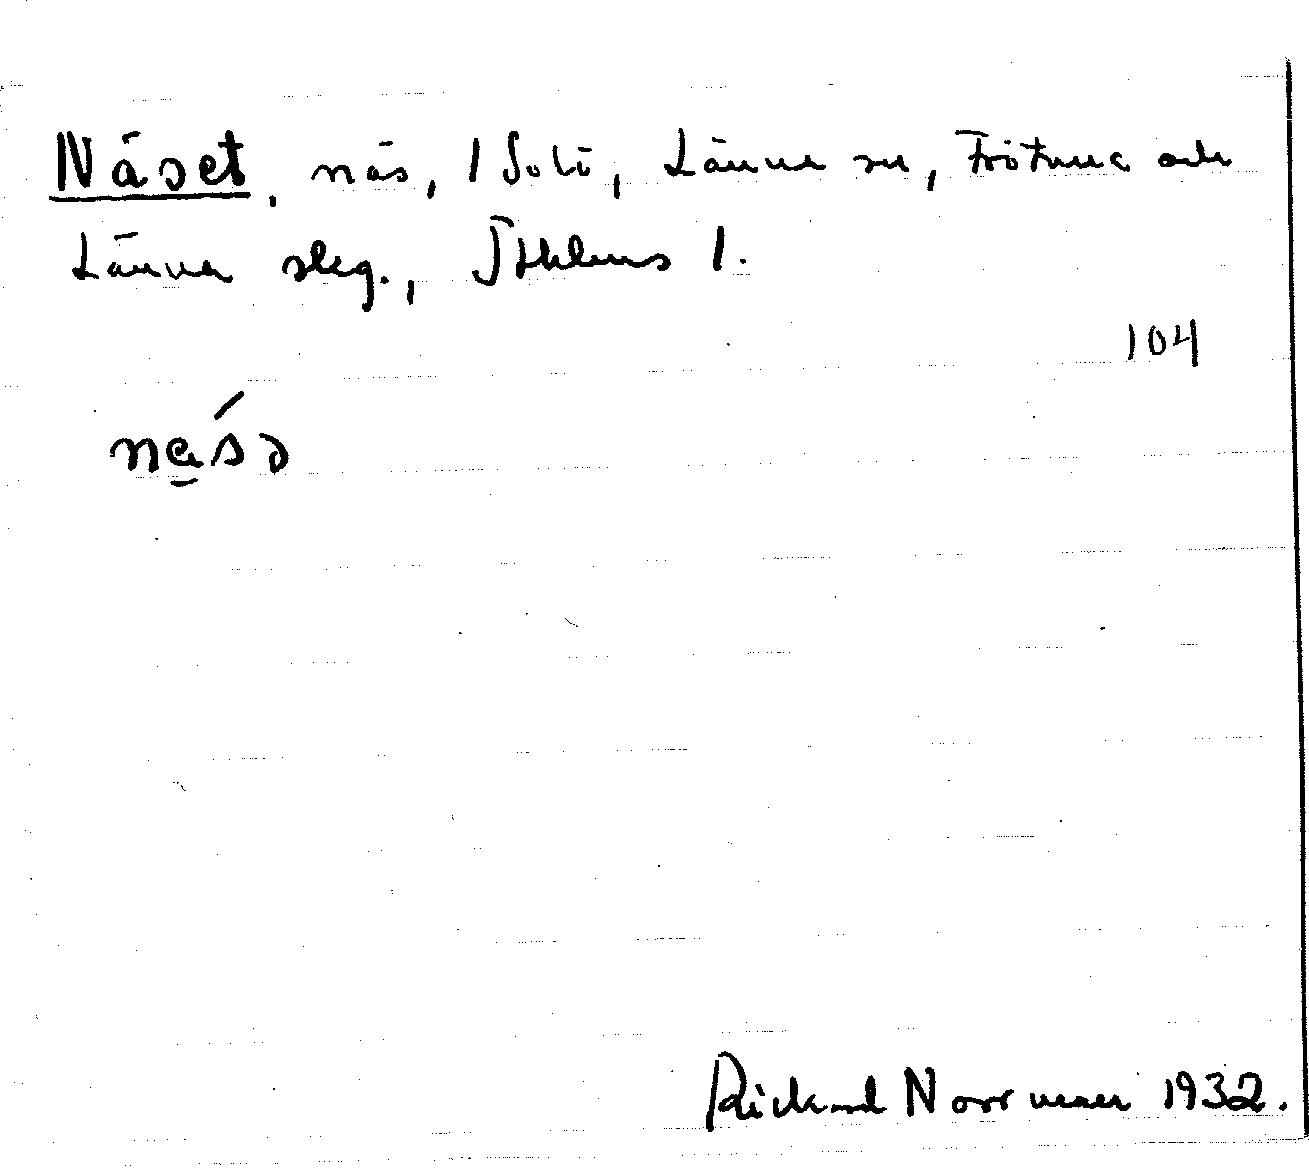 Näset, näs, 1 Solö, Länna sn, Frötuna och
Länna skg., Sthlms l.
104
næ̱śə
Rickard Norrman 1932.